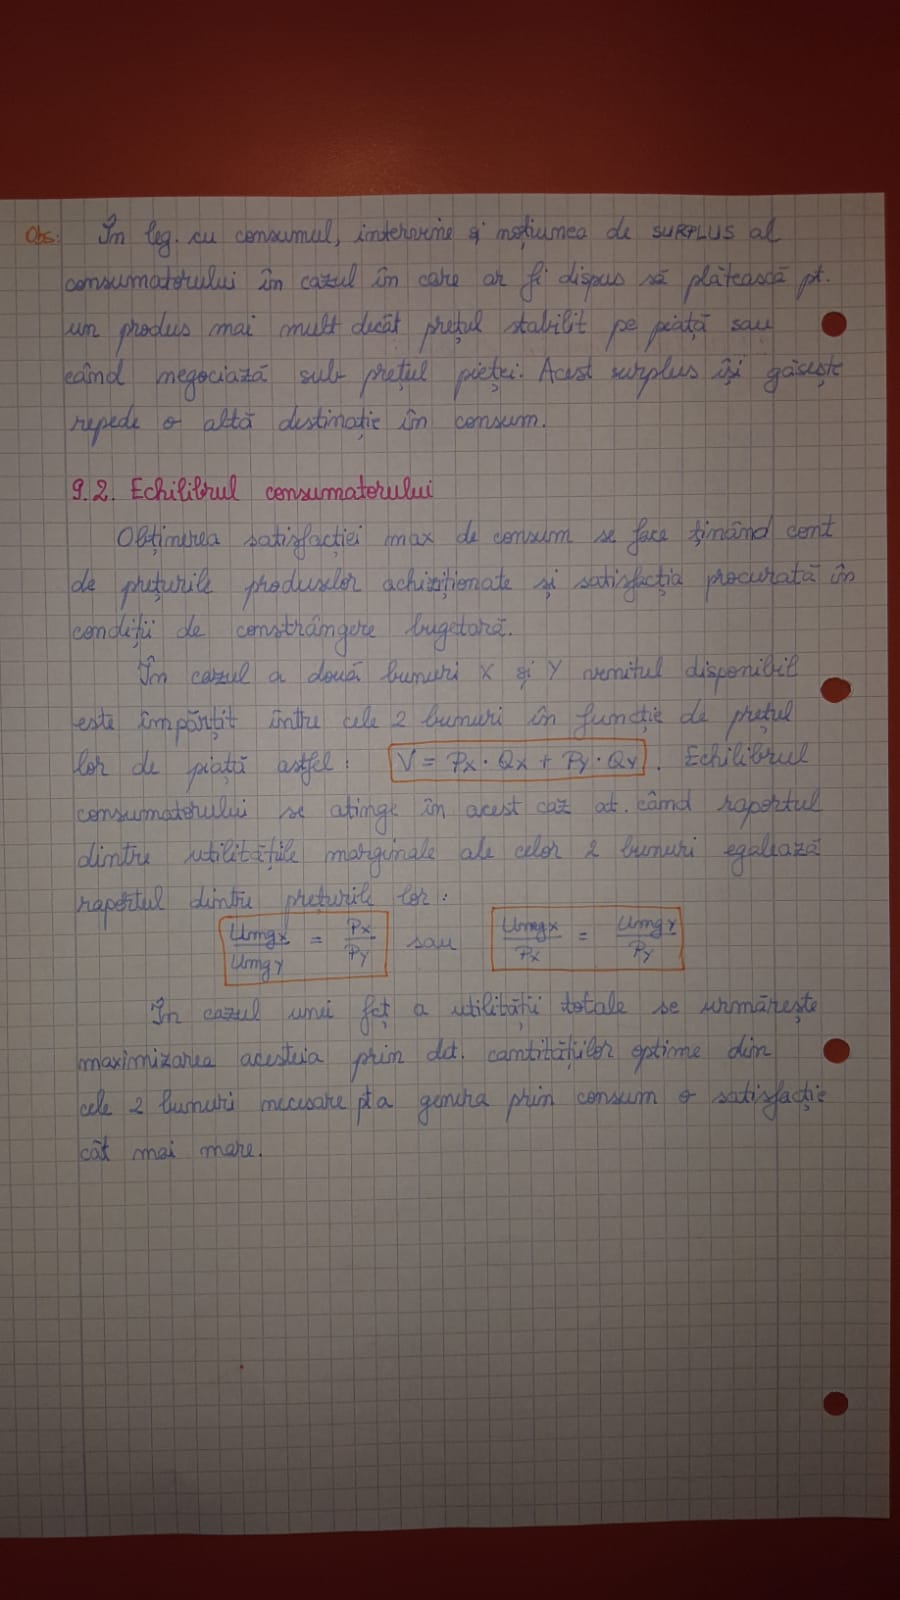 Obs: În leg. cu consumul, intervine și noțiunea de SURPLUS al
consumatorului în cazul în care ar fi dispus să plătească pt.
un produs mai mult decât prețul stabilit pe piață sau
când negociază sub prețul pieței. Acest surplus își găsește
repede o altă destinație în consum.
9.2. Echilibrul consumatorului
Obținerea satisfacției max de consum se face ținând cont
de prețurile produselor achiziționate și satisfacția procurată în
condiții de constrângere bugetară.
În cazul a două bunuri X și Y venitul disponibil
este împărțit între cele 2 bunuri în funcție de prețul
lor de piață astfel: V = Px · Qx + Py · Qy. Echilibrul
consumatorului se atinge în acest caz at. când raportul
dintre utilitățile marginale ale celor 2 bunuri egalează
raportul dintre prețurile lor:
Umgx / Umgy = Px / Py sau Umgx / Px = Umgy / Py
În cazul unei fct a utilității totale se urmărește
maximizarea acesteia prin det. cantităților optime din
cele 2 bunuri necesare pt a genera prin consum o satisfacție
cât mai mare.